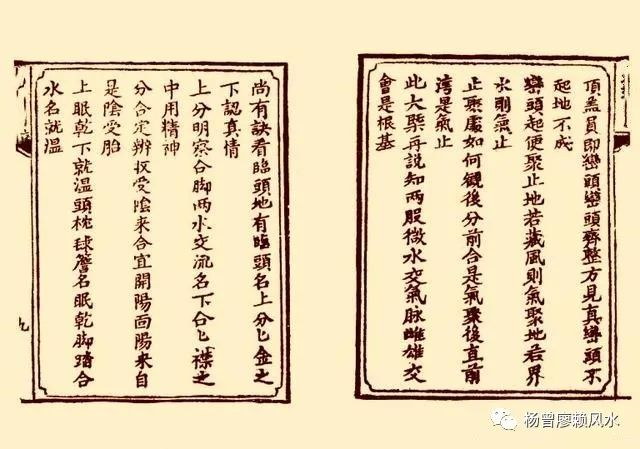 頂盖員即巒頭巒頭齊整方見真巒頭不
起地不成
巒頭起便聚止地若藏風則氣聚地若界
水則氣止
止聚處如何觀後分前合是氣聚後直前
湾是氣止
此大槩再說知兩股微水交氣脉雌雄交
會是根基
尚有訣看臨頭地有臨頭名上分匕金之
下認真情
上分明察合脚两水交流名下合匕襟之
中用精神
分合定辦收受陰來合宜開陽面陽來自
是陰受胎
上眠乾下就温頭枕毬簷名眠乾脚踏合
水名就温
九
杨曾廖赖风水